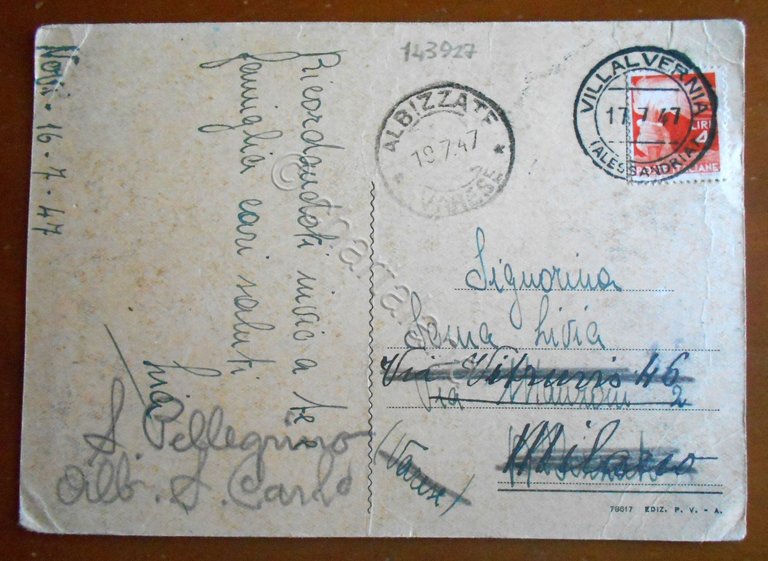 143927
Novi - 16-7-47
Ricordandoti invio a te e
famiglia cari saluti
Lia
S. Pellegrino
Alb. S. Carlo
ALBIZZATE
18.7.47
* VARESE *
VILLALVERNIA
17.7.47
(ALESSANDRIA)
LIRE
4
ITALIANE
Signorina
Livia
Via Vitruvio 46
Via Manzoni 2
Milano
(Varese)
78617 EDIZ. P. V. - A.